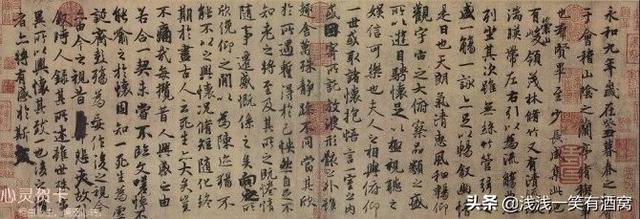 永和九年歲在癸丑暮春之
于會稽山陰之蘭亭脩
也羣賢畢至少長咸集此
有崇山峻領茂林脩竹又有清
湍暎帶左右引以為流觴
列坐其次雖無絲竹管弦
盛一觴一詠亦足以暢敘幽
是日也天朗氣清惠風和暢仰
觀宇宙之大俯察品類之盛
所以遊目騁懷足以極視聽之
娛信可樂也夫人之相與俯仰
一世或取諸懷抱悟言一室之內
或因寄所託放浪形骸之外雖
趣舍萬殊靜躁不同當其欣
於所遇蹔得於己怏然自足不
知老之將至及其所之既惓情
隨事遷感慨係之矣向之
欣俛仰之閒以為陳迹猶
能不以之興懷況脩短隨化終
期於盡古人云死生亦大矣豈
不痛哉每攬昔人興感之由
若合一契未嘗不臨文嗟悼不
能喻之於懷固知一死生為虛
誕齊彭殤為妄作後之視今
亦由今之視昔悲夫故
敘時人錄其所述雖世
異所以興懷其致一也後
者亦將有感於斯
心灵贺卡
头条 @浅浅一笑有酒窝